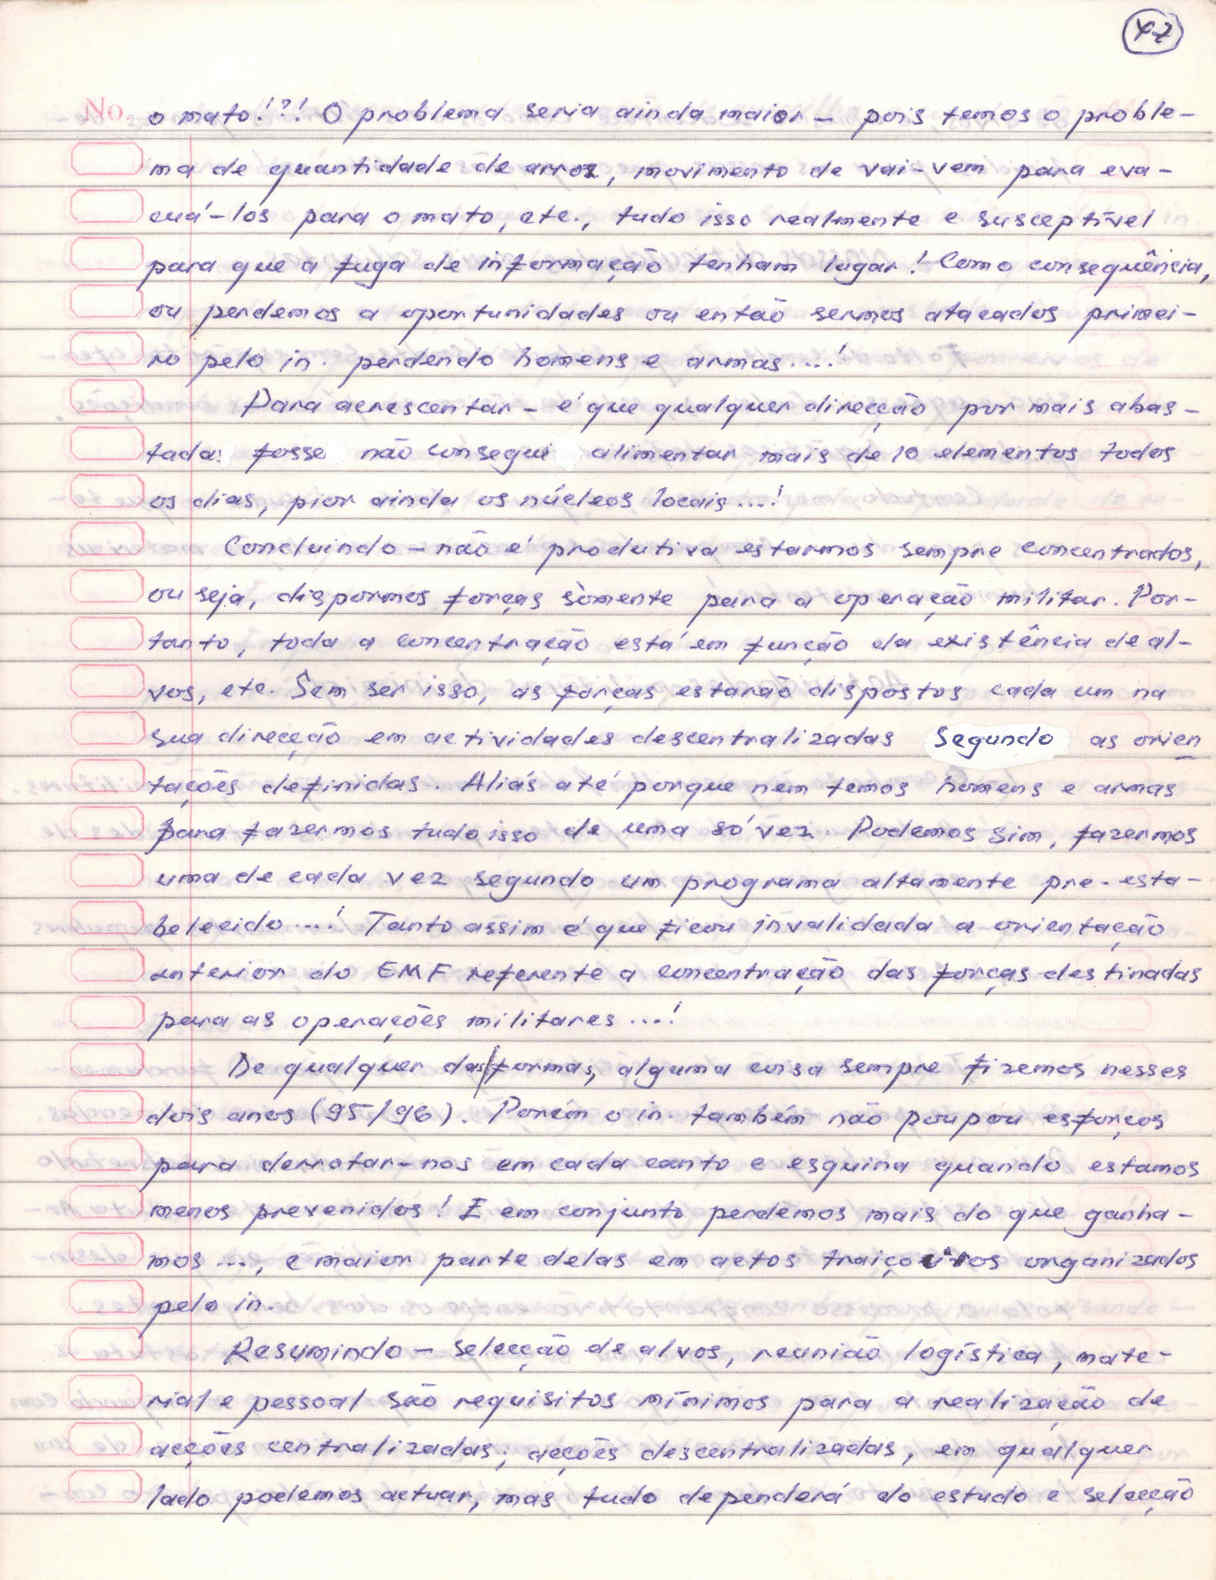 47
No.
o mato!?! O problema seria ainda maior - pois temos o proble-
ma de quantidade de arroz, movimento de vai-vem para eva-
cuá-los para o mato, etc., tudo isso realmente e susceptível
para que a fuga de informação tenham lugar! Como consequência,
ou perdemos a oportunidades ou então sermos atacados primei-
ro pelo in. perdendo homens e armas....!
Para acrescentar - é que qualquer direcção por mais abas-
tada: fosse não consegui alimentar mais de 10 elementos todos
os dias, pior ainda os núcleos locais....!
Concluindo - não é produtiva estarmos sempre concentrados,
ou seja, dispormos forças sòmente para a operação militar. Por-
tanto, toda a concentração está em função da existência de al-
vos, etc. Sem ser isso, as forças estarão dispostos cada um na
sua direcção em actividades descentralizadas segundo as orien
tações definidas. Aliás até porque nem temos homens e armas
para fazermos tudo isso de uma só vez. Podemos sim, fazermos
uma de cada vez segundo um programa altamente pre-esta-
belecido....! Tanto assim é que ficou invalidada a orientação
anterior do EMF referente a concentração das forças destinadas
para as operações militares....!
De qualquer das/formas, alguma coisa sempre fizemos nesses
dois anos (95/96). Porém o in. também não poupou esforços
para derrotar-nos em cada canto e esquina quando estamos
menos prevenidos! E em conjunto perdemos mais do que ganha-
mos..., e maior parte delas em actos traiçoeiros organizados
pelo in.
Resumindo - selecção de alvos, reunião logística, mate-
rial e pessoal são requisitos mínimos para a realização de
acções centralizadas; acções descentralizadas, em qualquer
lado podemos actuar, mas tudo dependerá do estudo e selecção